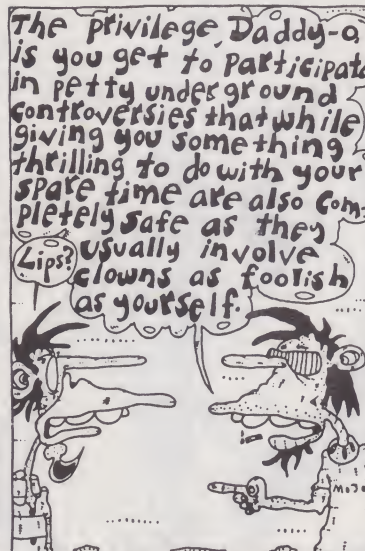 The privilege, Daddy-o,
is you get to participate
in petty underground
controversies that while
giving you something
thrilling to do with your
spare time are also com-
pletely safe as they
usually involve
clowns as foolish
as yourself.
Lips?